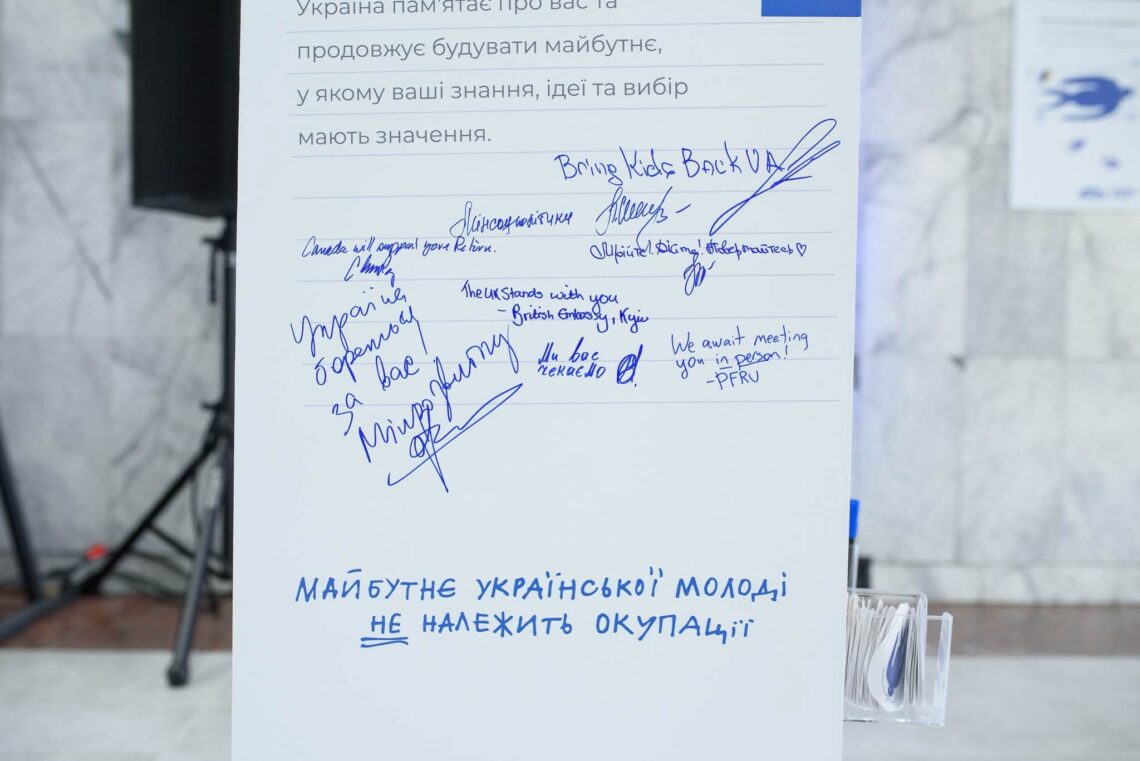 Україна пам'ятає про вас та
продовжує будувати майбутнє,
у якому ваші знання, ідеї та вибір
мають значення.
Bring Kids Back UA
Мінсоцполітики
Canada will support your Return.
Мрійте! Дійте! Повертайтесь♡
The UK stands with you
- British Embassy, Kyiv
Україна
бореться
за вас
Мінрозвитку
Ми вас
чекаємо
We await meeting
you in person!
-PFRU
МАЙБУТНЄ УКРАЇНСЬКОЇ МОЛОДІ
НЕ НАЛЕЖИТЬ ОКУПАЦІЇ